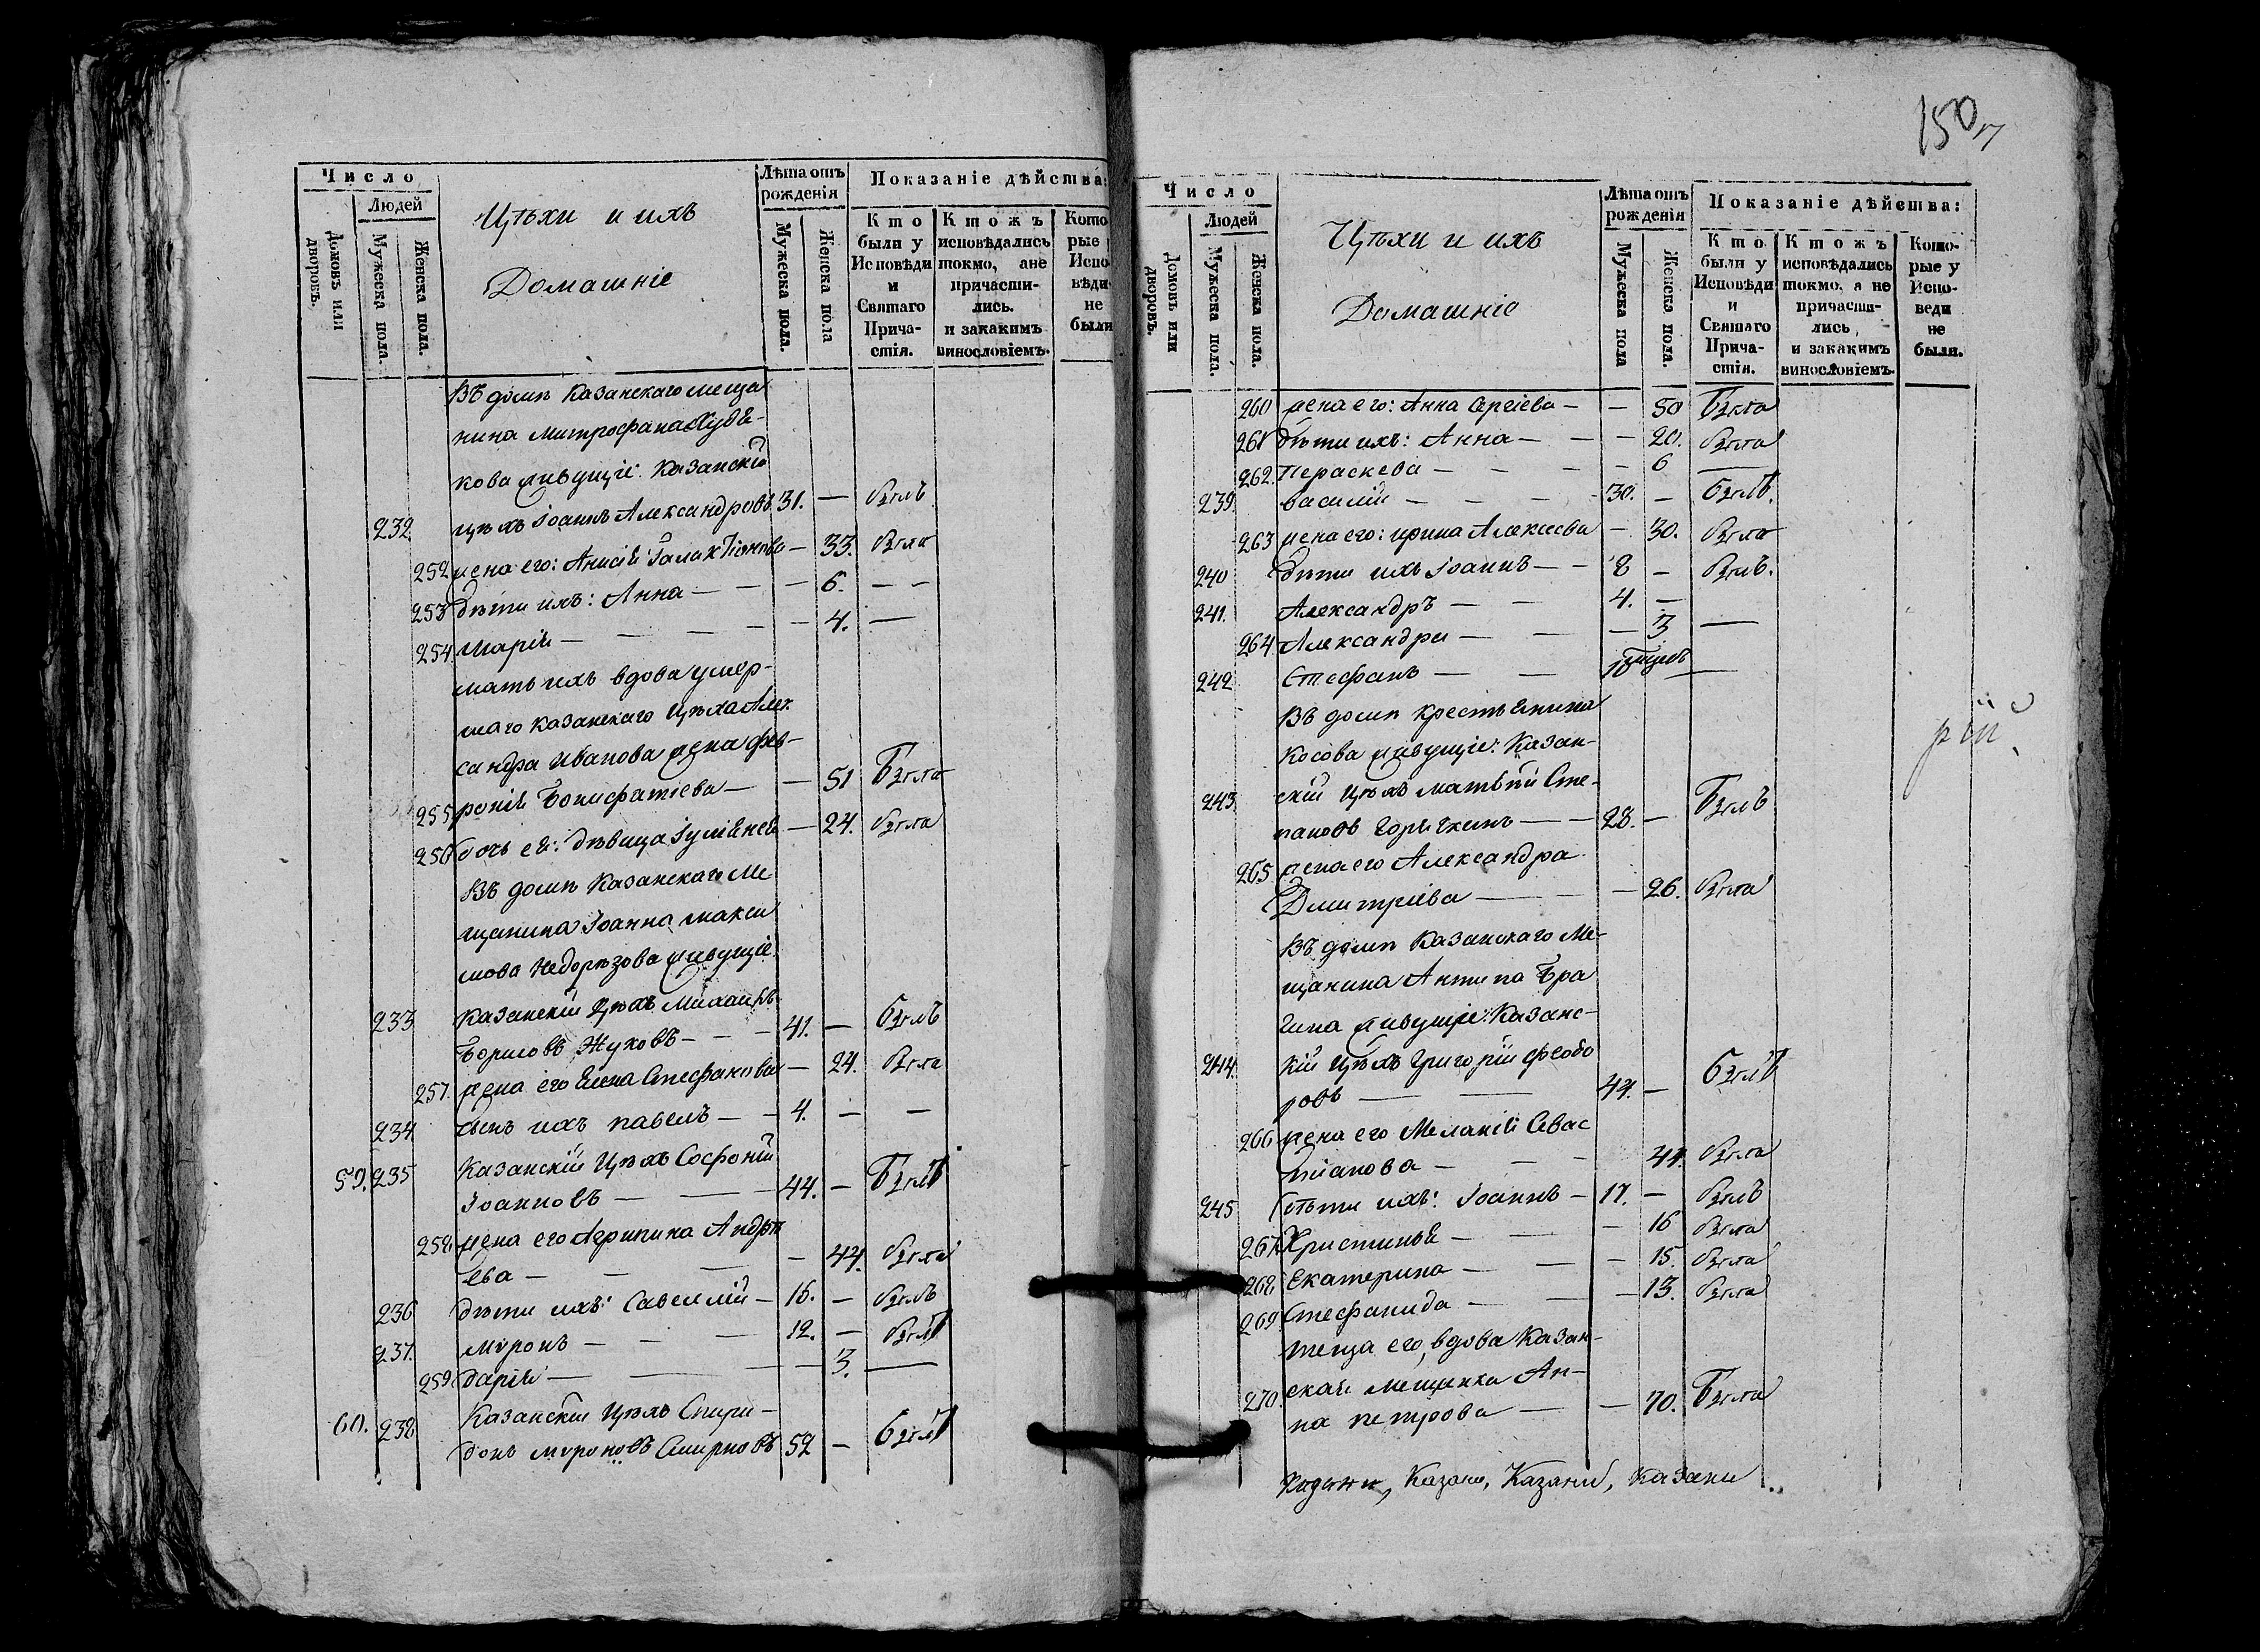 Число
Людей
Домовъ или дворовъ.
Мужеска пола.
Женска пола.
Цѣхи и ихъ
Домашніе
Лѣта отъ рожденія
Мужеска пола.
Женска пола
Показаніе дѣйства:
Кто были у Исповѣди и Святаго Прича- стія.
Ктожъ исповѣдались токмо, а не причасти- лись. и закакимъ винословіемъ.
Кото рые Испо вѣди не были
Въ домѣ Казанскаго меща
нина Митрофана Худя-
кова живущіе: Казанскій
232 цѣхъ Іоаннъ Александровъ 31. — былъ
252 жена его: Анисія Галактіонова — 33. была
253 дѣти ихъ: Анна — — 6. — —
254. Марія — — — — 4. —
мать ихъ вдова умер-
шаго казанскаго цѣха Алек
сандра Иванова жена фев-
255 ронія Бонифатіева — — 51 Была
256 дочь ея: дѣвица Іуліанея — 24. была
Въ домѣ Казанскаго Ме
щанина Іоанна Макси
мова Недорѣзова живущіе
233 Казанскій Цѣхъ Михаилъ
Борисовъ Жуковъ — — 41. — былъ
257. жена его Елена Стефанова — 24. была
234. сынъ ихъ павелъ — 4. — —
59. 235 Казанскій Цѣхъ Софроній
Іоанновъ — — 44. — Былъ
258 жена его Агрипина Андрѣ
ева — — — — 44. была
236 дѣти ихъ: Савелій — 16. — былъ
237. Мѵронъ — — — 12. — былъ
259 дарія — — — — 3. —
60. 238 Казанскій Цѣхъ Спири-
донъ Мѵроновъ Смирновъ 52 — былъ
150
Число
Людей
Домовъ или дворовъ.
Мужеска пола.
Женска пола.
Цѣхи и ихъ
Домашніе
Лѣта отъ рожденія
Мужеска пола
Женска пола.
Показаніе дѣйства:
Кто были у Исповѣди и Святаго Прича- стія.
Ктожъ исповѣдались токмо, а не причасти- лись, и закакимъ винословіемъ.
Кото- рые у Испо- веди не были.
260 жена его: Анна Сергіева — — 50 Была
261 дѣти ихъ: Анна — — — 20. была
262. Пераскева — — — — 6 —
239. василій — — — 30. — былъ.
263 жена его: ирина Алексеева — 30. была
240 дѣти ихъ Іоаннъ — — 8 — былъ.
241. Александръ — — 4. —
264 Александра — — — 3 —
242 Стефанъ — — 10 —
Въ домѣ крестьянина
Косова живущіе: Казан-
243 скій цѣхъ матѳей Сте-
пановъ Горячкинъ — — 28. — Былъ
265 жена его Александра
Дмитріева — — — 26. была
Въ домѣ Казанскаго Ме-
щанина Антипа Бра
гина живущіе: Казанс-
244. кій Цѣхъ Григорій Феодо
ровъ — — 44. — былъ
266 жена его Меланія Севас
тіанова — — — 44. была
245 дѣти ихъ: Іоаннъ — 17. — былъ
267 Христинья — — — 16 была
268 Екатерина — — — 15. была
269 Стефанида — — — 13. была
теща его, вдова Казан-
270. ская мещанка Ан-
на петрова — — 70. Была
рій
Казани, Казани, Казани, Казани